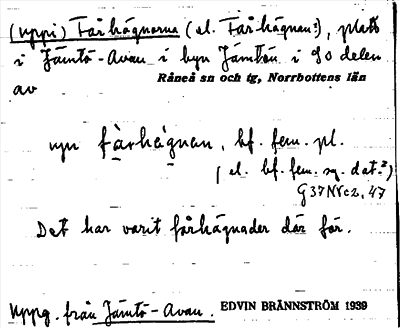 (uppi) Fårhägnarna (el. Fårhägnan?), plats
i Jämtö-Avan i byn Jämtön i SO delen
av Råneå sn och tg, Norrbottens län
uyn fàrhägnan, bf. fem. pl.
(el. bf. fem. sg. dat.?)
G 37 NV c2, 47
Det har varit fårhägnader där för.
Uppg. från Jämtö-Avan. EDVIN BRÄNNSTRÖM 1939